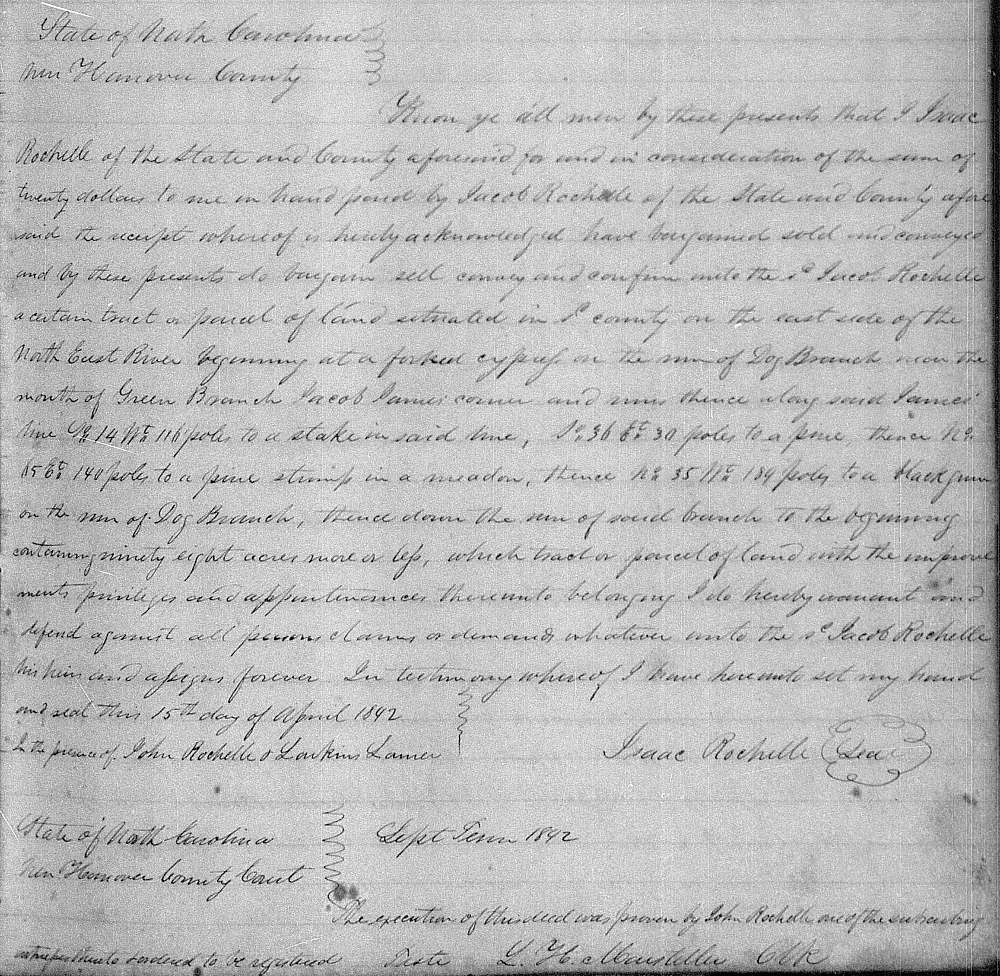 State of North Carolina
New Hanover County
Know ye all men by these presents that I Isaac
Rochelle of the State and County aforesaid for and in consideration of the sum of
twenty dollars to me in hand paid by Jacob Rochelle of the State and County afore
said the receipt whereof is hereby acknowledged have bargained sold and conveyed
and by these presents do bargain sell convey and confirm unto the sd Jacob Rochelle
a certain tract or parcel of land situated in sd county on the east side of the
North East River beginning at a forked cypress on the run of Dog Branch near the
mouth of Green Branch Jacob James' corner and runs thence along said James'
line So 14 Wt 116 poles to a stake in said line, So 36 Et 30 poles to a pine, thence No
85 Et 140 poles to a pine stump in a meadow, thence No 35 Wt 184 poles to a black gum
on the run of Dog Branch, thence down the run of said branch to the beginning
containing ninety eight acres more or less, which tract or parcel of land with the improve
ments privileges and appurtenances thereunto belonging I do hereby warrant and
defend against all persons claims or demands whatever unto the sd Jacob Rochelle
his heirs and assigns forever In testimony whereof I have hereunto set my hand
and seal this 15th day of April 1842
In the presence of John Rochelle & Larkins Lanier
Isaac Rochelle Seal
State of North Carolina
New Hanover County Court
Sept Term 1842
The execution of this deed was proven by John Rochelle one of the subscribing
witnesses thereto & ordered to be registered Teste L. H. Marsteller Clk